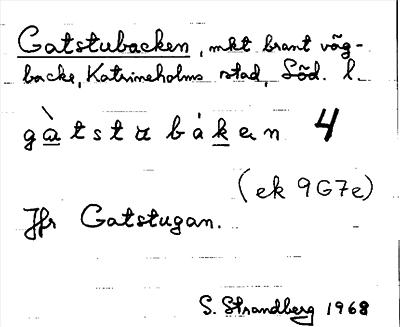 Gatstubacken, mkt brant väg-
backe, Katrineholms stad, Söd. l.
gàtstu báken 4
(ek 9G7e)
Jfr Gatstugan.
S. Strandberg 1968